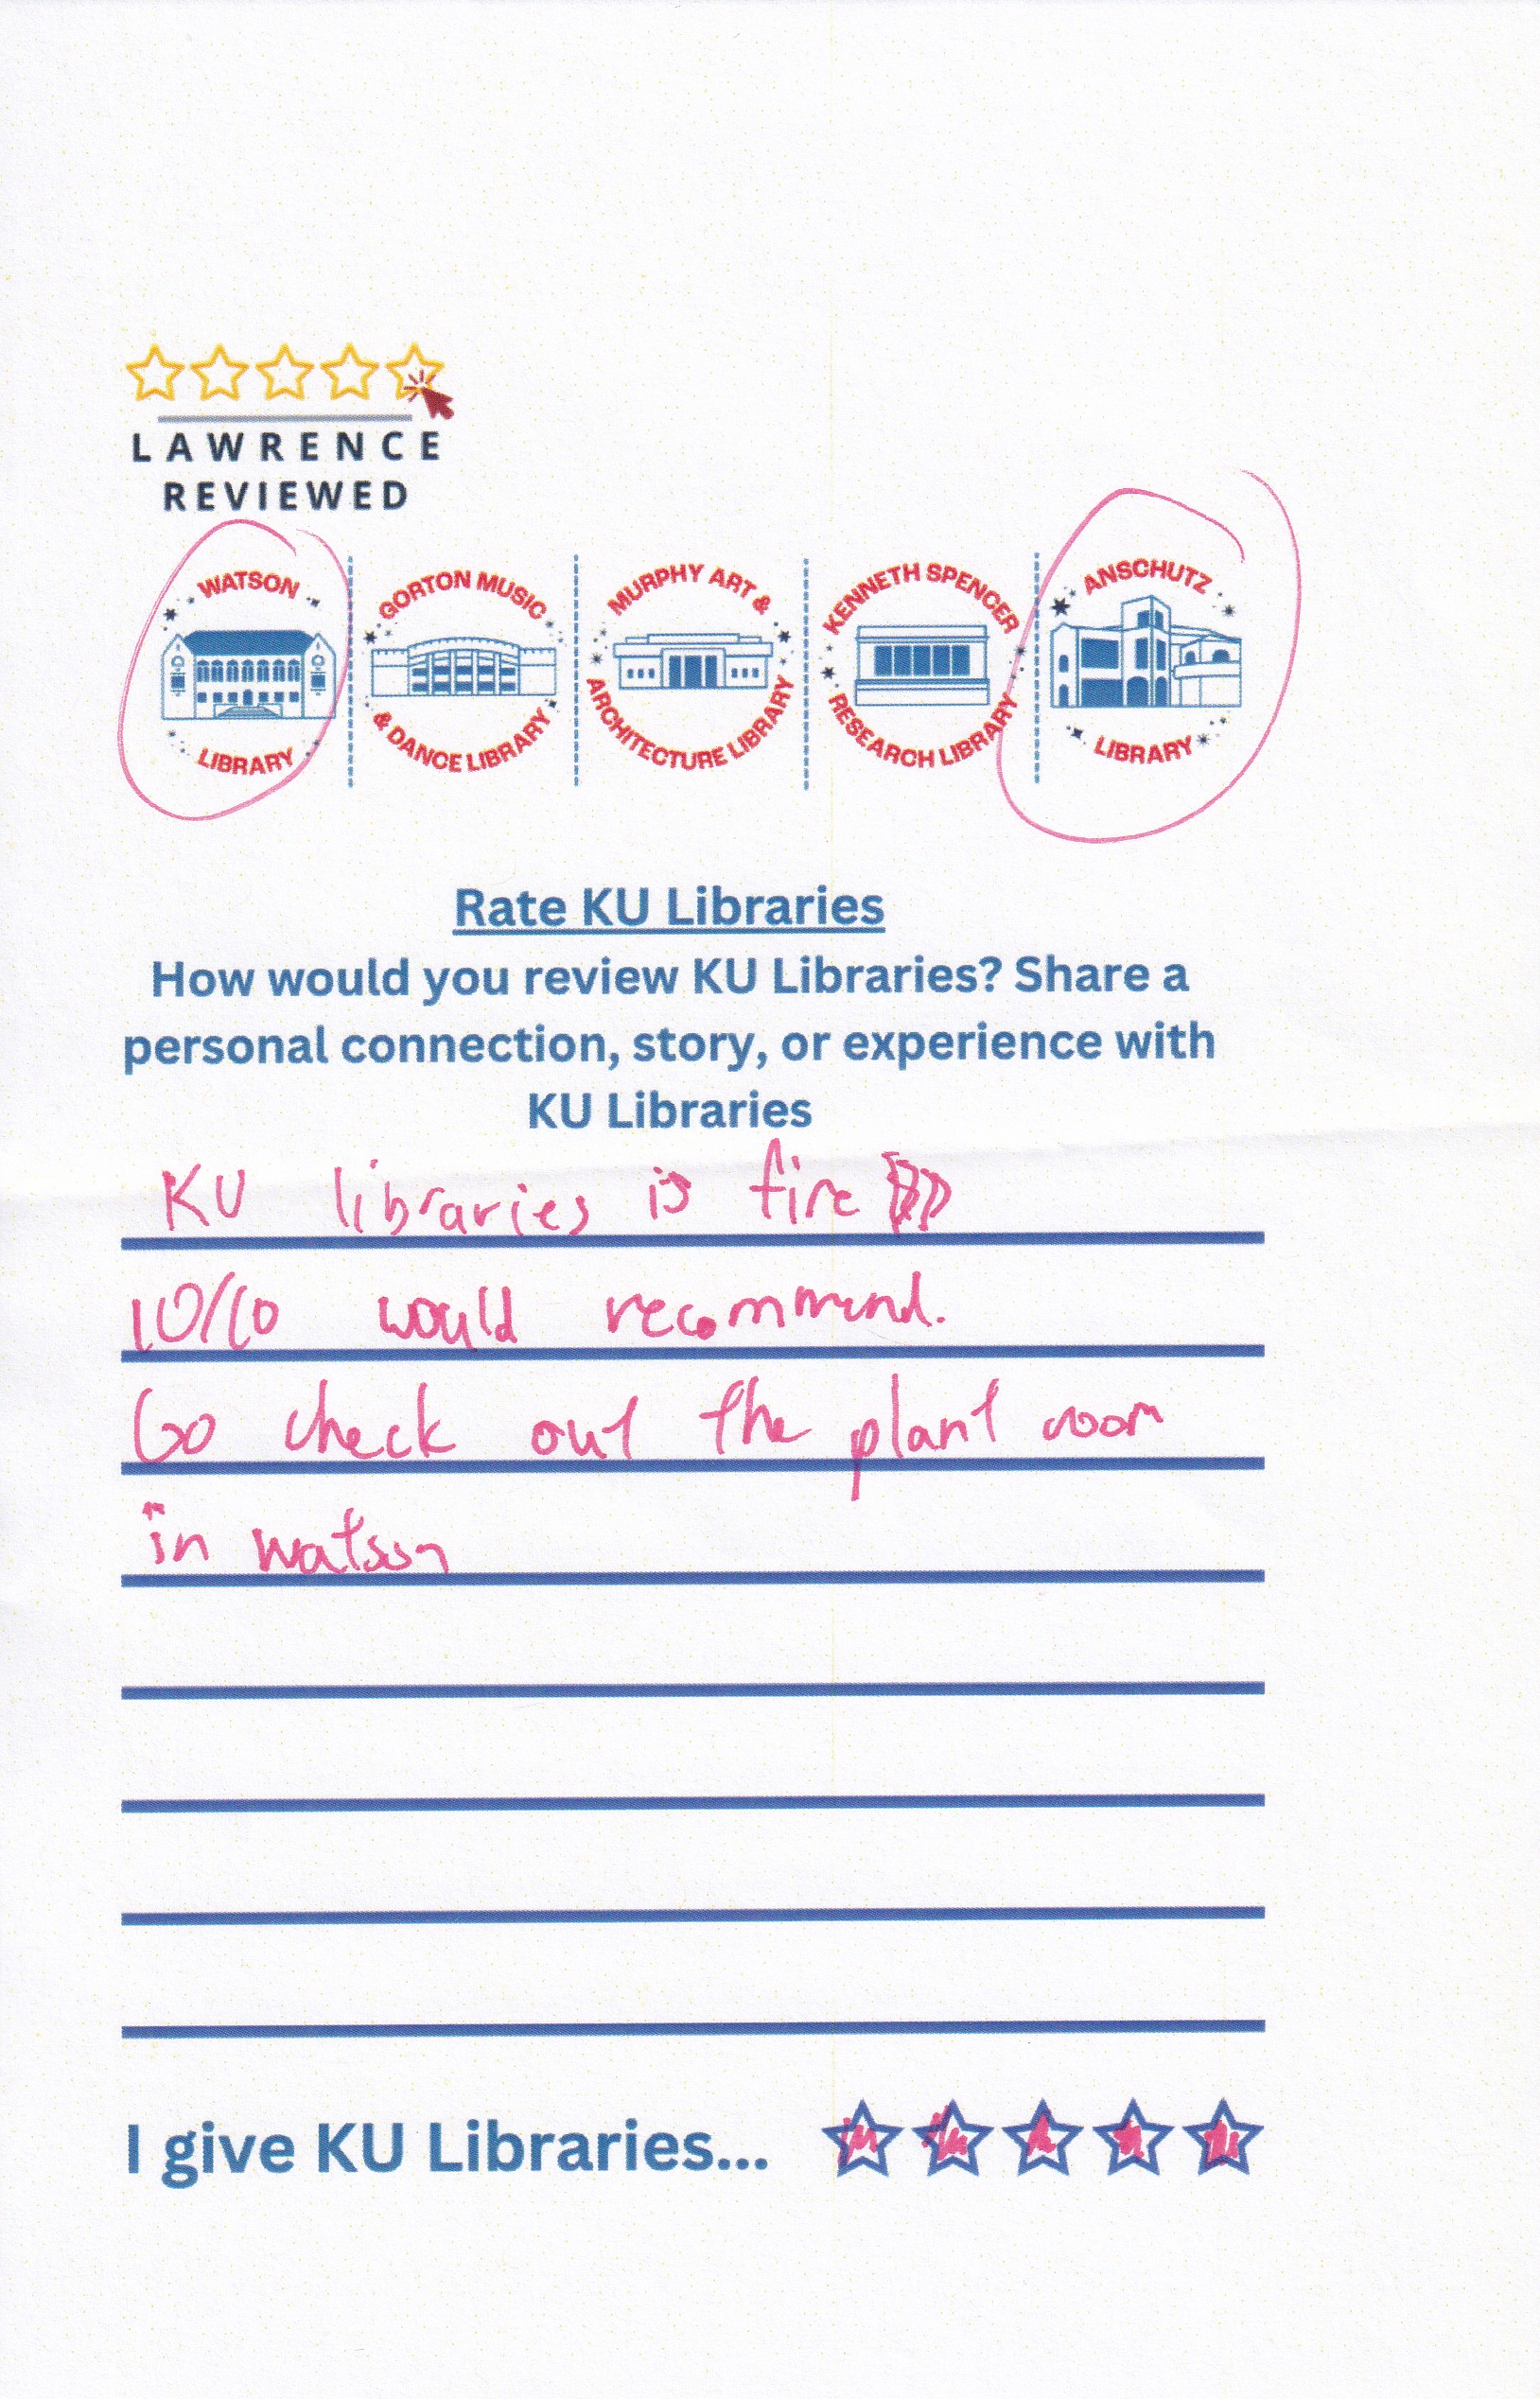 LAWRENCE
REVIEWED
WATSON LIBRARY
GORTON MUSIC & DANCE LIBRARY
MURPHY ART & ARCHITECTURE LIBRARY
KENNETH SPENCER RESEARCH LIBRARY
ANSCHUTZ LIBRARY
Rate KU Libraries
How would you review KU Libraries? Share a
personal connection, story, or experience with
KU Libraries
KU libraries is fire
10/10 would recommend.
Go check out the plant room
in watson
I give KU Libraries...